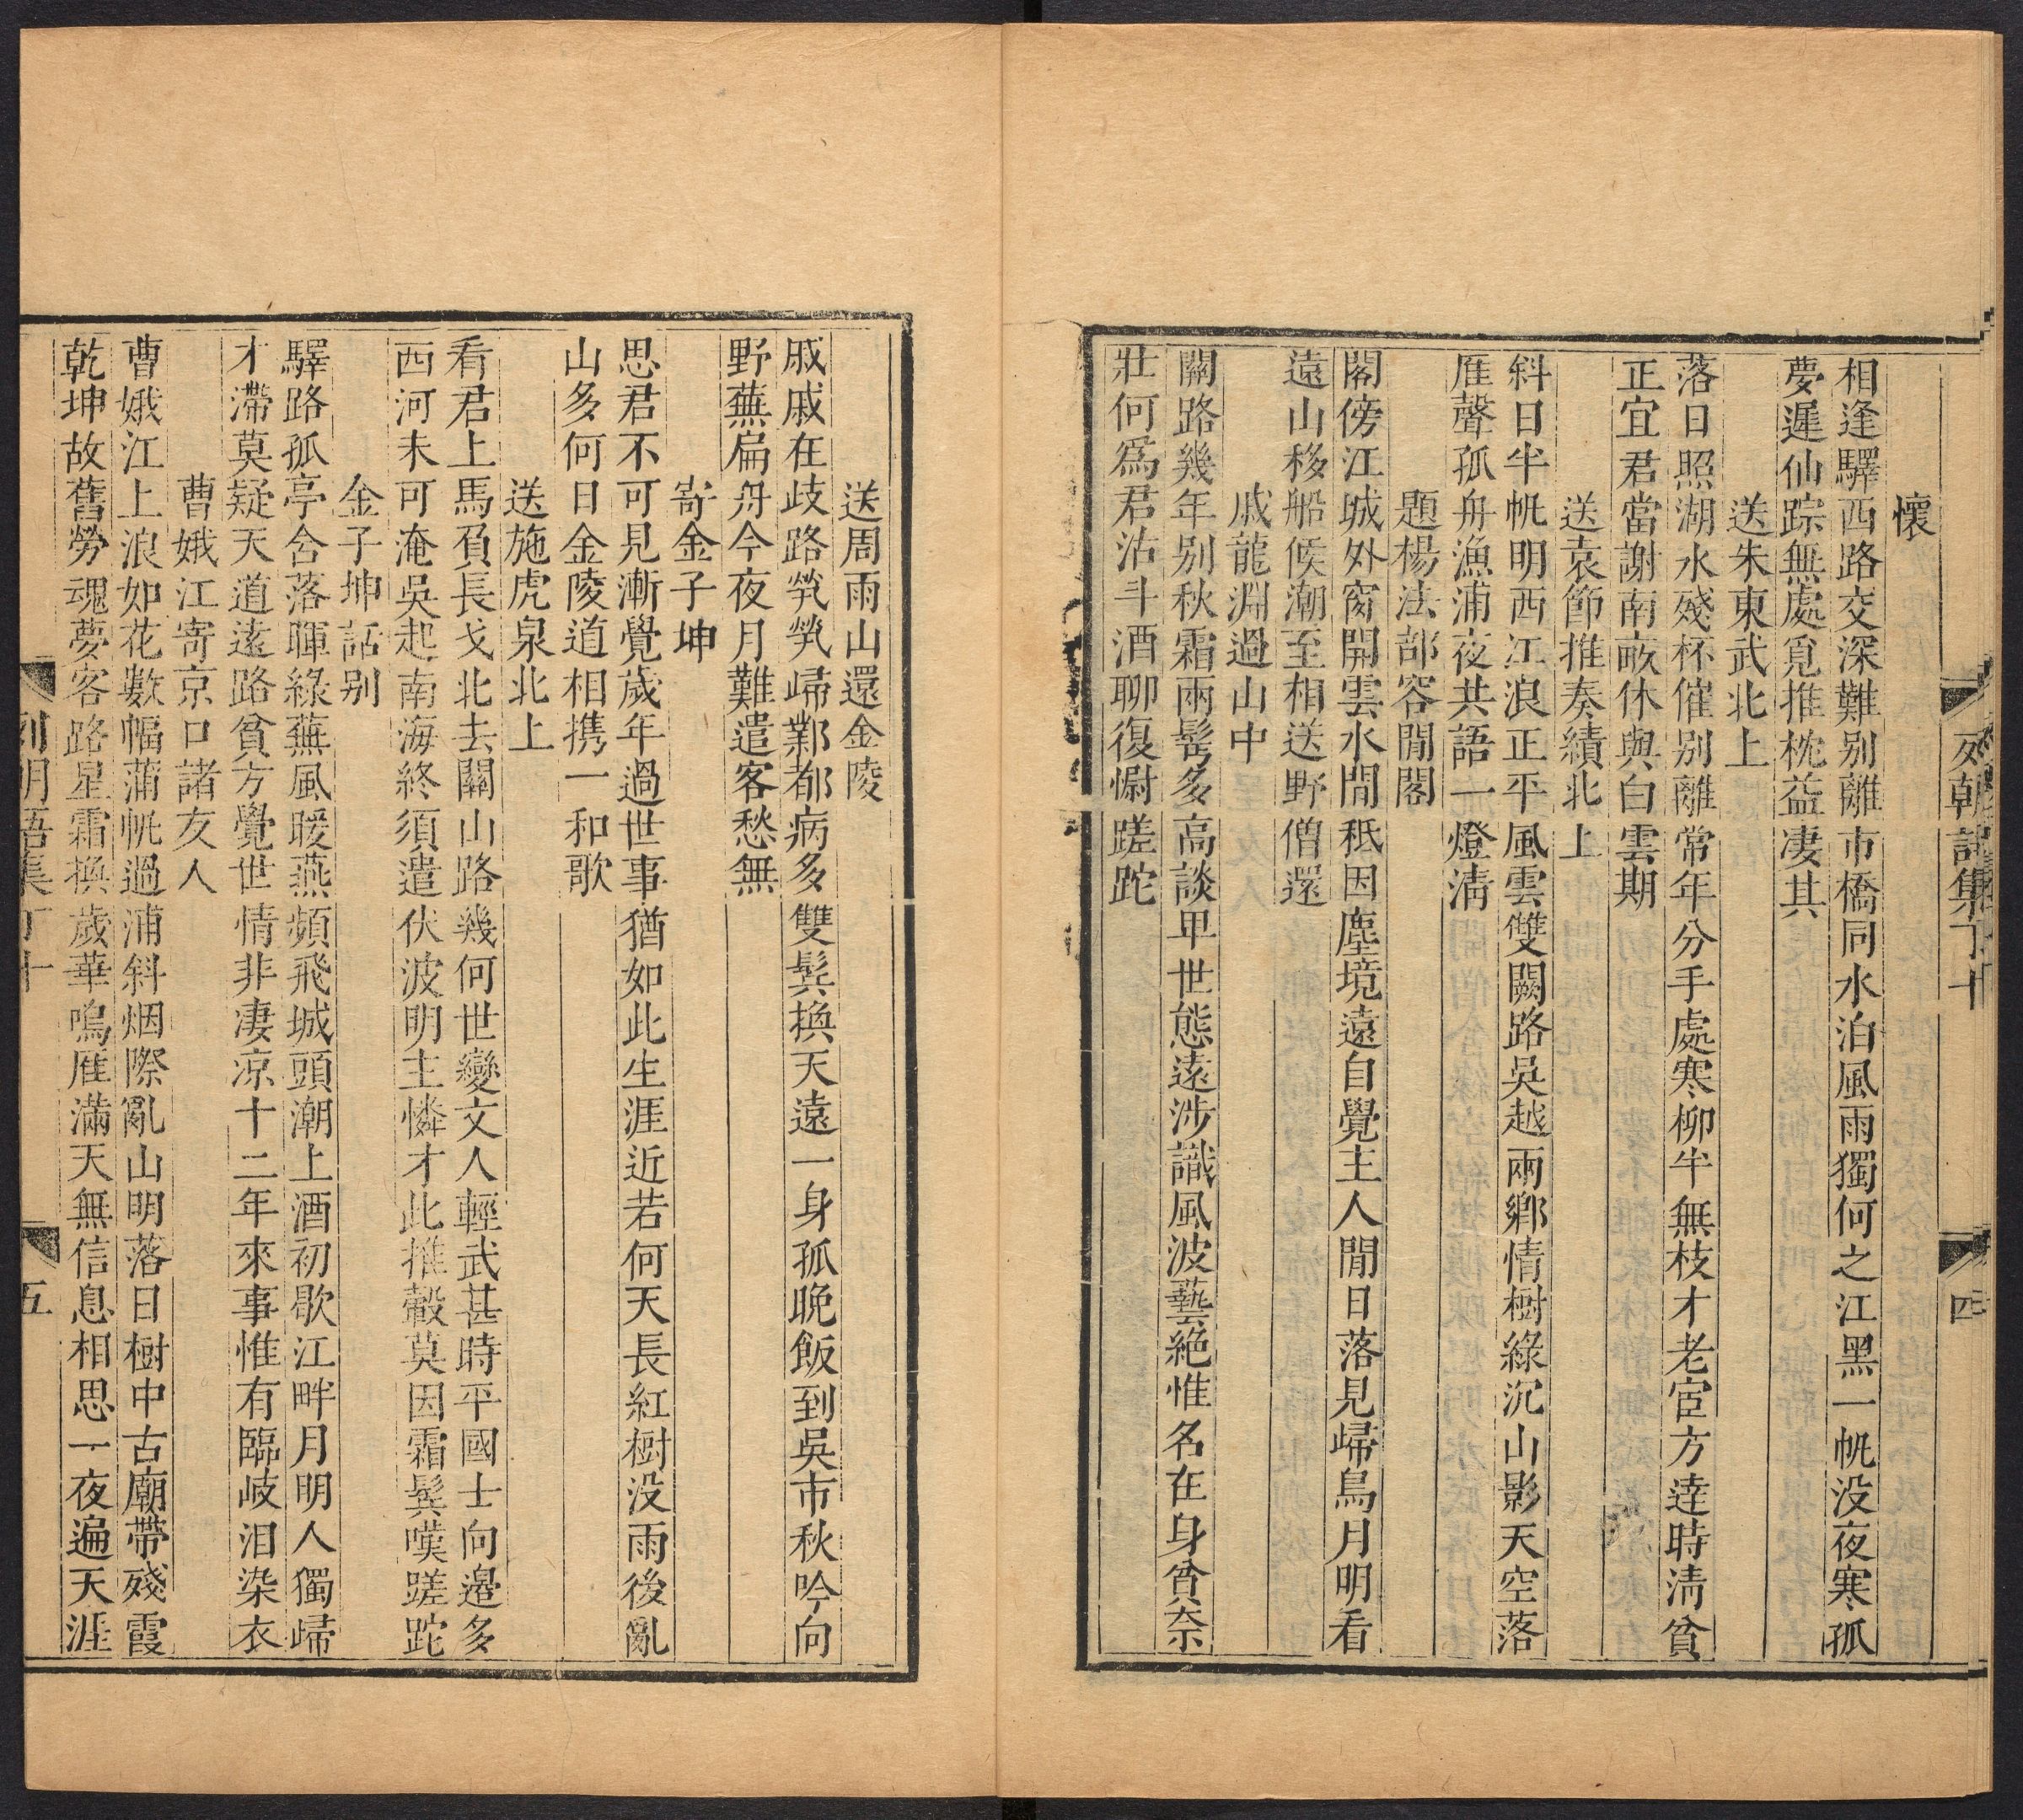 懷
相逢驛西路交深難別離市橋同水泊風雨獨何之江黑一帆没夜寒孤
夢遲仙踪無處覓推枕益凄其
送朱東武北上
落日照湖水殘杯催別離常年分手處寒柳半無枝才老宦方達時清貧
正宜君當謝南畝休與白雲期
送袁節推奏績北上
斜日半帆明西江浪正平風雲雙闕路吳越兩鄉情樹綠沉山影天空落
雁聲孤舟漁浦夜共語一燈清
題楊法部容閒閣
閣傍江城外窗開雲水閒秪因塵境遠自覺主人閒日落見歸鳥月明看
遠山移船候潮至相送野僧還
戚龍淵過山中
關路幾年別秋霜兩鬢多高談甲世態遠涉識風波藝絶惟名在身貧奈
壯何爲君沽斗酒聊復慰蹉跎
列朝詩集丁十
四
送周雨山還金陵
戚戚在歧路煢煢歸鄴都病多雙鬂換天遠一身孤晚飯到吳市秋吟向
野蕪扁舟今夜月難遣客愁無
寄金子坤
思君不可見漸覺歲年過世事猶如此生涯近若何天長紅樹没雨後亂
山多何日金陵道相携一和歌
送施虎泉北上
看君上馬負長戈北去關山路幾何世變文人輕武甚時平國士向邉多
西河未可淹吳起南海終須遣伏波明主憐才此推轂莫因霜鬂嘆蹉跎
金子坤話别
驛路孤亭含落暉綠蕪風暖燕頻飛城頭潮上酒初歇江畔月明人獨歸
才滯莫疑天道遠路貧方覺世情非凄凉十二年來事惟有臨岐泪染衣
曹娥江寄京口諸友人
曹娥江上浪如花數幅蒲帆過浦斜烟際亂山明落日樹中古廟帶殘霞
乾坤故舊勞魂夢客路星霜換歲華鳴雁滿天無信息相思一夜遍天涯
列朝詩集丁十
五